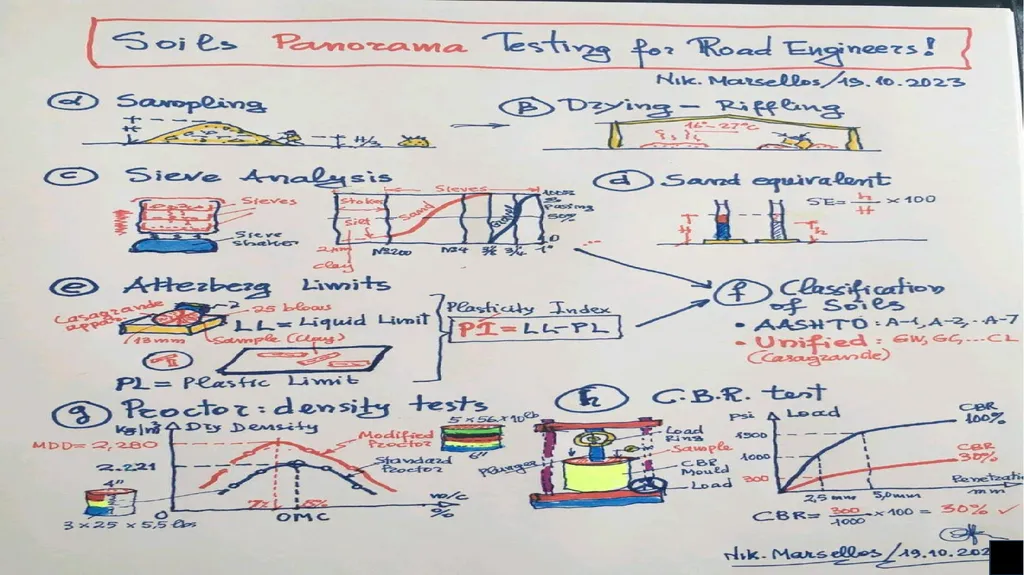 Soils Panorama Testing for Road Engineers!
Nik. Marsellos/19.10.2023
a Sampling
H
H/3
B Drying - Riffling
16°-27°C
c Sieve Analysis
Sieves
Sieve
shaker
Sieves
Stokes
Silt
Sand
Gravel
100%
%
Passing
50%
0
2μm
clay
N≌200
N≌4
3/8
3/4
1"
d Sand equivalent
SE = h/H × 100
H
h
e Atterberg Limits
Casagrande
appar.
2
25 blows
LL = Liquid Limit
Sample (clay)
13mm
PL = Plastic Limit
Plasticity Index
PI = LL-PL
f Classification
of Soils
• AASHTO: A-1, A-2, .. A-7
• Unified: GW, GC, ... CL
(Casagrande)
g Proctor: density tests
kg/m³
Dry Density
MDD = 2,280
2.221
Modified
Proctor
Standard
Proctor
5 x 56 x 10lb
6"
4"
3 x 25 x 5,5 lbs
0
7%
OMC
w/c
%
h C.B.R. test
Load
Ring
Sample
Plunger
CBR
Mould
Load
psi
Load
1500
1000
300
CBR
100%
CBR
30%
Penetration
mm
2,5 mm
5,0mm
CBR = 300/1000 × 100 = 30% ✓
Nik. Marsellos/19.10.202